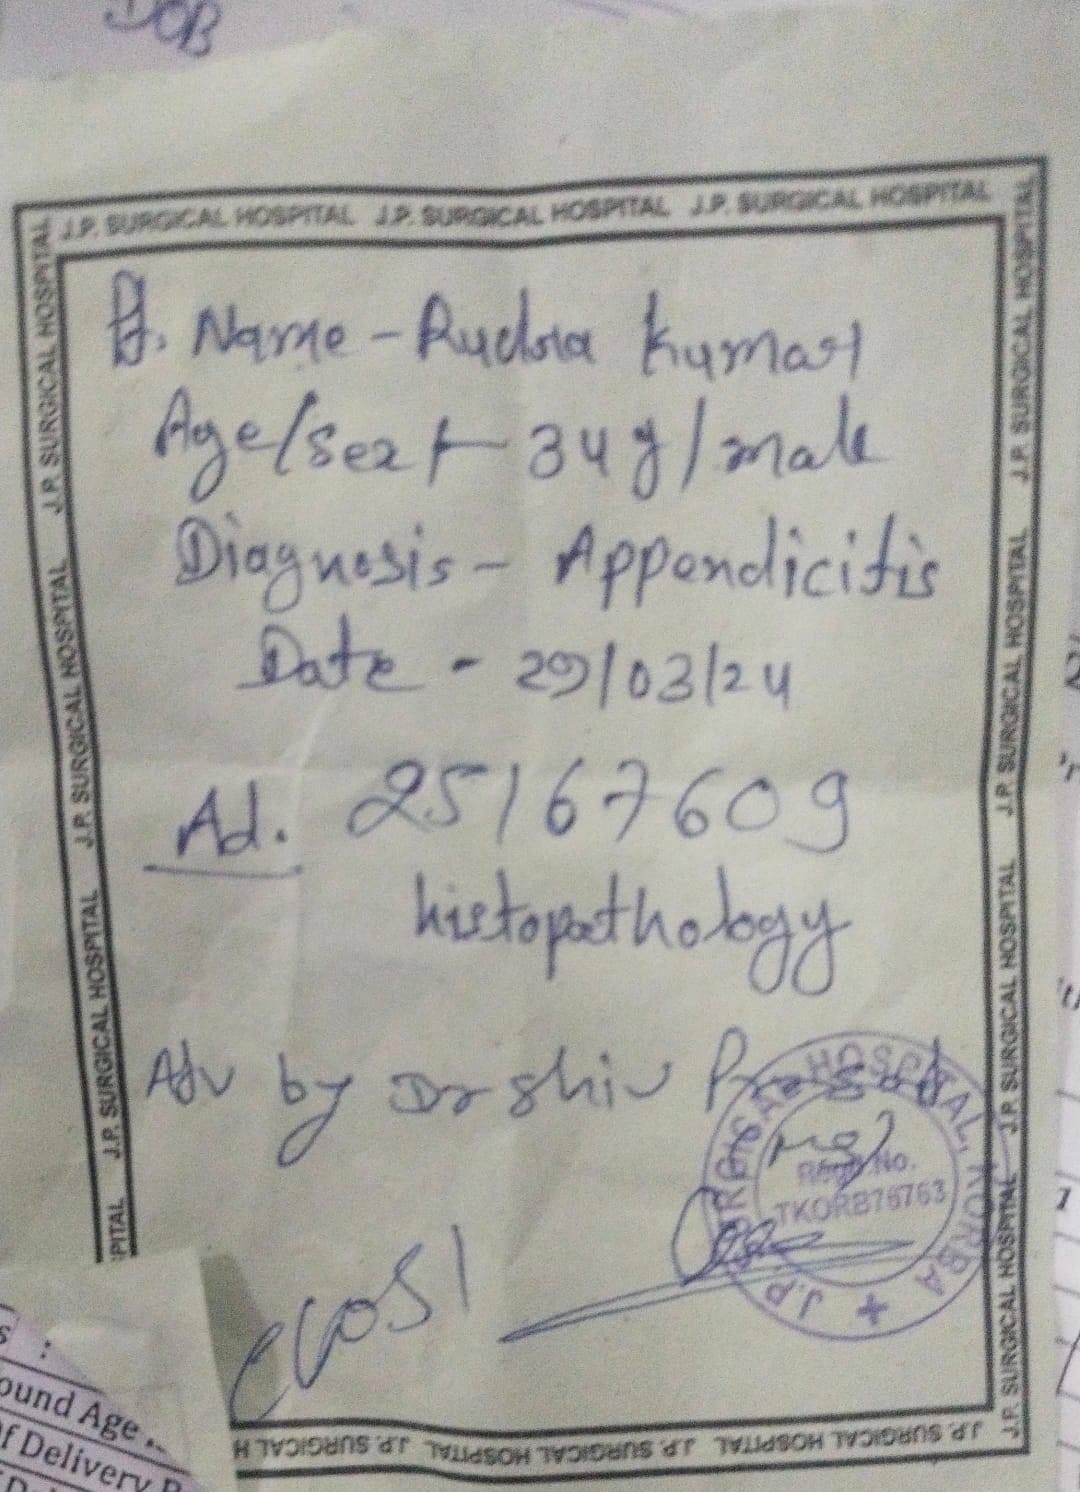 DOB
J.P. SURGICAL HOSPITAL J.P. SURGICAL HOSPITAL J.P. SURGICAL HOSPITAL
Pt. Name - Rudra Kumar
Age/Sex - 34 y / male
Diagnosis - Appendicitis
Date - 29/03/24
Ad. 25167609
histopathology
Adv by Dr Shiv Prasad
(MS)
J.P. SURGICAL HOSPITAL, KORBA
Regd. No.
TKORB76763
J.P. SURGICAL HOSPITAL J.P. SURGICAL HOSPITAL J.P. SURGICAL HOSPITAL J.P. SURGICAL HOSPITAL
PITAL J.P. SURGICAL HOSPITAL J.P. SURGICAL HOSPITAL J.P. SURGICAL HOSPITAL
J.P. SURGICAL HOSPITAL J.P. SURGICAL HOSPITAL J.P. SURGICAL H
ound Age
f Delivery